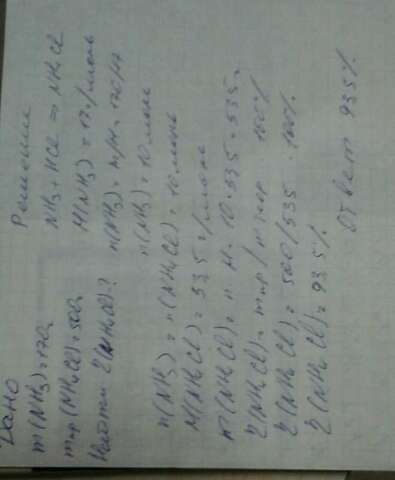 Дано
m(NH3)=170г
mпр(NH4Cl)=500г
Найти η(NH4Cl)-?
Решение
NH3 + HCl = NH4Cl
M(NH3) = 17г/моль
n(NH3) = m/M = 170/17
n(NH3) = 10 моль
n(NH3) = n(NH4Cl) = 10 моль
M(NH4Cl) = 535 г/моль
m(NH4Cl) = n · M = 10 · 535 = 535г
η(NH4Cl) = mпр/mтеор · 100%
η(NH4Cl) = 500/535 · 100%
η(NH4Cl) = 935%
Ответ 935%